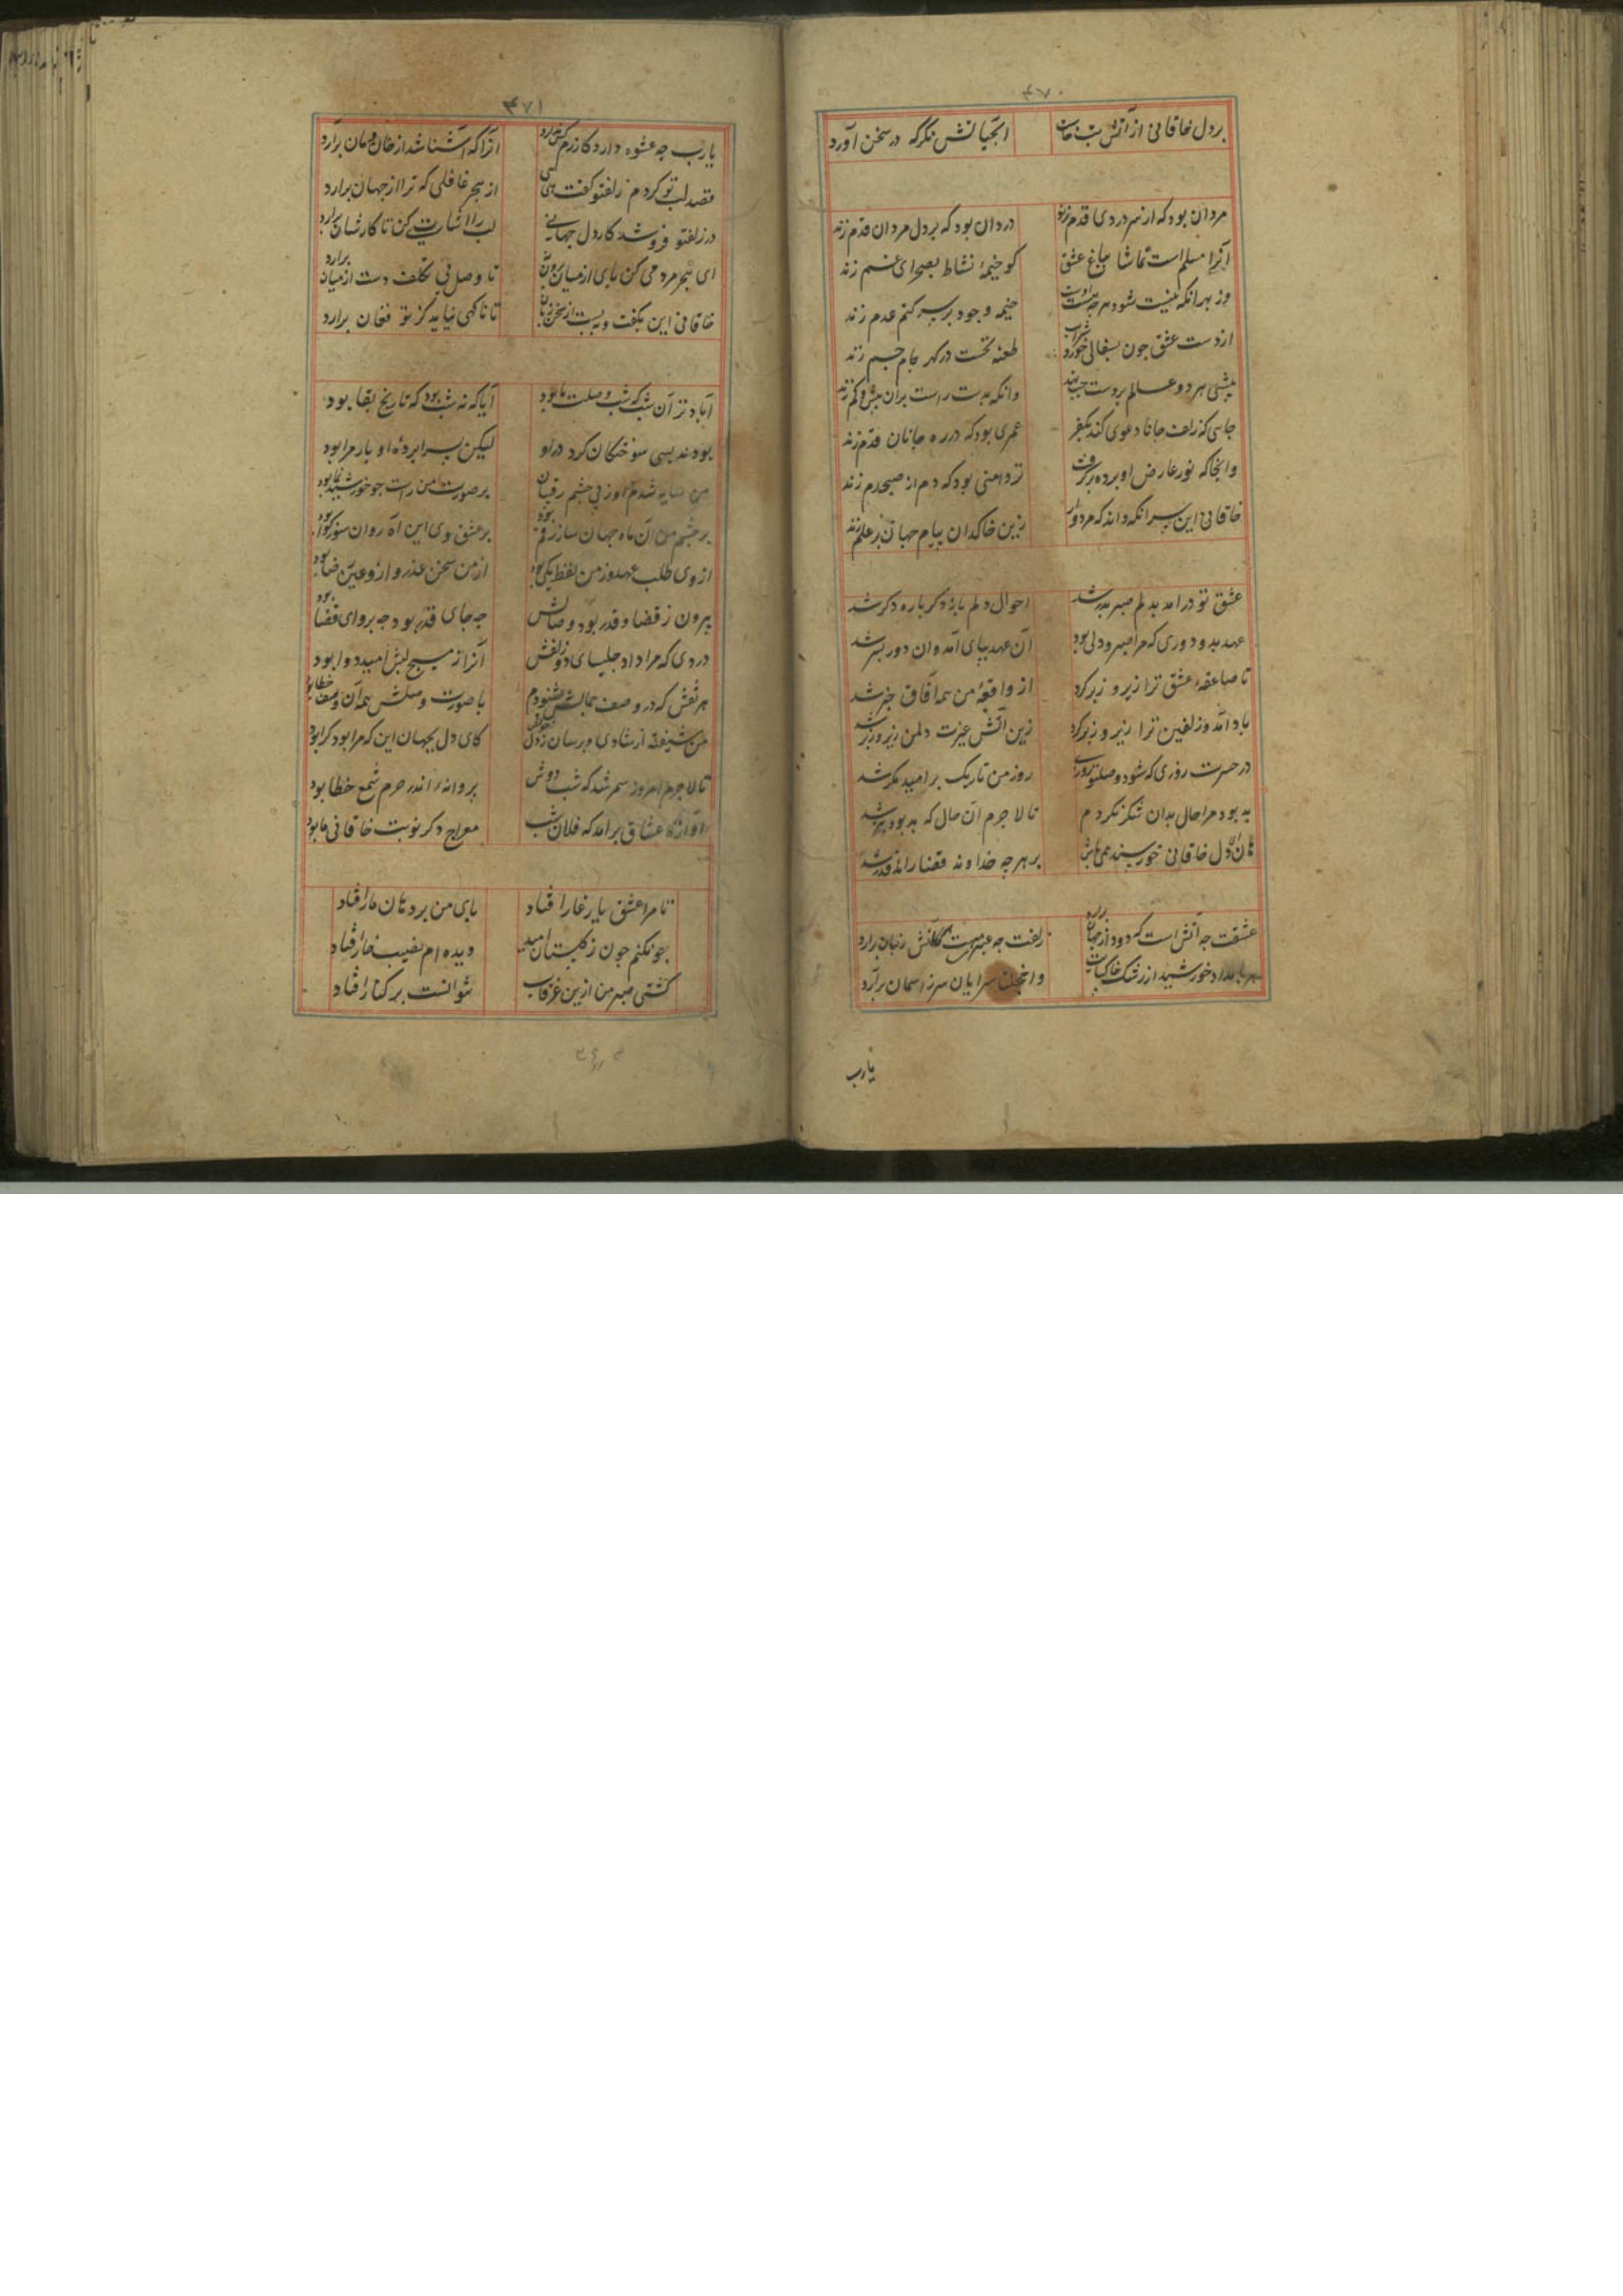 ۴۷۰
بر دل خاقانی از آتش تب خاست انجیانش نکر که در سخن آورد
مردان بود که از سر دردی قدم زند درد آن بود که بر دل مردان قدم زند
آنرا مسلم است تماشا بباغ عشق کو خیمهٔ نشاط بصحرای غم زند
وز بهر آنکه نیست شود هرچه هست خیمه وجود بر سر کتم عدم زند
از دست عشق چون بسفالی شراب خورد طعنه نخست در کهر جام جم زند
بیشی هر دو عالم بر دست چپ نهد وانکه بدست راست بران بیش و کم زند
جایی که زلف جانان دعوی کند بکفر عمری بود که در ره جانان قدم زند
وانجا که نور عارض او پرده برگرفت تردامنی بود که دم از صبحدم زند
خاقانی این سر آنکه داند که مردوار زین خاکدان ببام جهان بر علم زند
عشق تو درامد بدلم صبر بدر شد احوال دلم باز دگرباره دگر شد
عهد بد و دوری که مرا صبر و دلی بود آن عهد بپای آمد وان دور بسر شد
تا صاعقهٔ عشق ترا زیر و زبر کرد از واقعهٔ من همه آفاق خبر شد
باد آمد و زلفین ترا زیر و زبر کرد زین آتش غیرت دل من زیر و زبر شد
در حسرت روزی که شود وصل تو روزی روز من تاریک بر امید مکر شد
بد بود مرا حال بدان شکر نکردم تا لاجرم آن حال که بد بود بتر شد
هان ای دل خاقانی خورسند همی باش بر هرچه خداوند قضا راند قدر شد
عشقت چه آتش است که دود از جهان برارد زلفت چه عنبرست کآتش زبان برارد
هر بامداد خورشید از رشک خاکپایت واخجلتا سرایان سر ز آسمان برآرد
یارب
۴۷۱
یارب چه عشوه دارد کازرم کس ندارد آنرا که آشنا شد از خان و مان برآرد
قصد لب تو کردم زلفتو گفت هی کسی از هجر غافلی که ترا از جهان برارد
در زلفتو فروشد کار دل جهانی لب را اشارتی کن تا کارشان برارد
ای هجر مردمی کن پای از میان برون تا وصل بی تکلف دست از میان برارد
خاقانی این بگفت و ببست از سخن زبان تا ناکهی نیاید کز تو فغان برارد
آباد تر آن شب که شب وصلت ما بود آیا که نه شب بود که تاریخ بقا بود
بودند بسی سوختکان کرد در او لیکن بسراپردهٔ او بار مرا بود
من سایه شدم او ز پی چشم رقیبان بر صورت من راست چو خورشید نما بود
بر چشم من آن ماه جهان ساز رقم بود بر عشق وی این آه روان سوز کوا بود
از وی طلب عهد و ز من لفظ بلی بود از من سخن عذر و ازو عین رضا بود
بیرون ز قضا و قدر بود وصالش چه جای قدر بود چه پروای قضا بود
دردی که مرا داد چلیپای دو زلفش آنرا ز مسیح لبش امید دوا بود
هر نقش که در وصف جمالش بشنودم با صورت وصلش همه آن وصف خطا بود
من شیفته از شادی و پرسان ز دل کای دل بجهان این که مرا بود کرا بود
تا لاجرم امروز سمر شد که شب دوش پروانه اندر حرم شمع خطا بود
آوازهٔ عشاق برامد که فلان شب معراج دکر نوبت خاقانی ما بود
تا مرا عشق یار غار افتاد پای من بر دهان مار افتاد
چو نکنم چون ز کلبستان امید دیده ام نصیب خار افتاد
کشتی صبر من ازین غرقاب نتوانست بر کنار افتاد